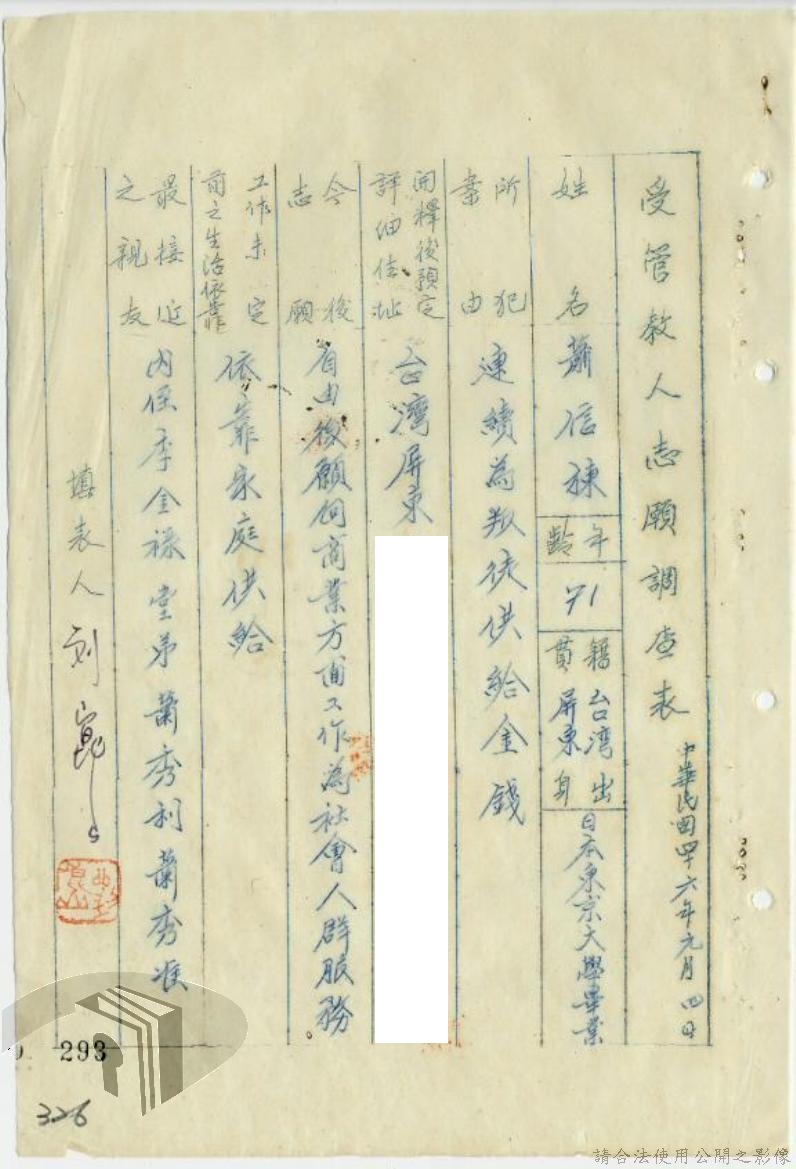 受管教人志願調查表
中華民國四十六年元月四日
姓名
蕭信棟
年齡
71
籍貫
台灣屏東
出身
日本東京大學畢業
所犯案由
連續為叛徒供給金錢
開釋後預定詳細住址
台灣屏東
今後志願
自由後願向商業方面工作為社會人群服務。
工作未定前之生活依靠
依靠家庭供給
最接近之親友
內侄李金祿 堂弟蕭秀利蕭秀准
填表人 劉崑
293
326
請合法使用公開之影像